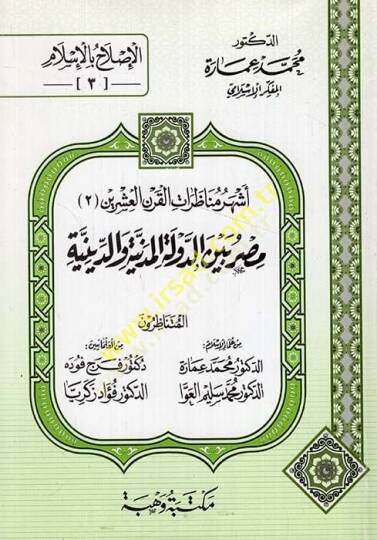 الدكتور
محمد عمارة
المفكر الإسلامي
الإصلاح بالإسلام
[ ٣ ]
أشهر مناظرات القرن العشرين (٢)
مصر بين الدولة المدنية والدينية
المتناظرون
من علماء الإسلام:
الدكتور محمد عمارة
الدكتور محمد سليم العوا
من العلمانيين:
دكتور فرج فوده
الدكتور فؤاد زكريا
مكتبة وهبة